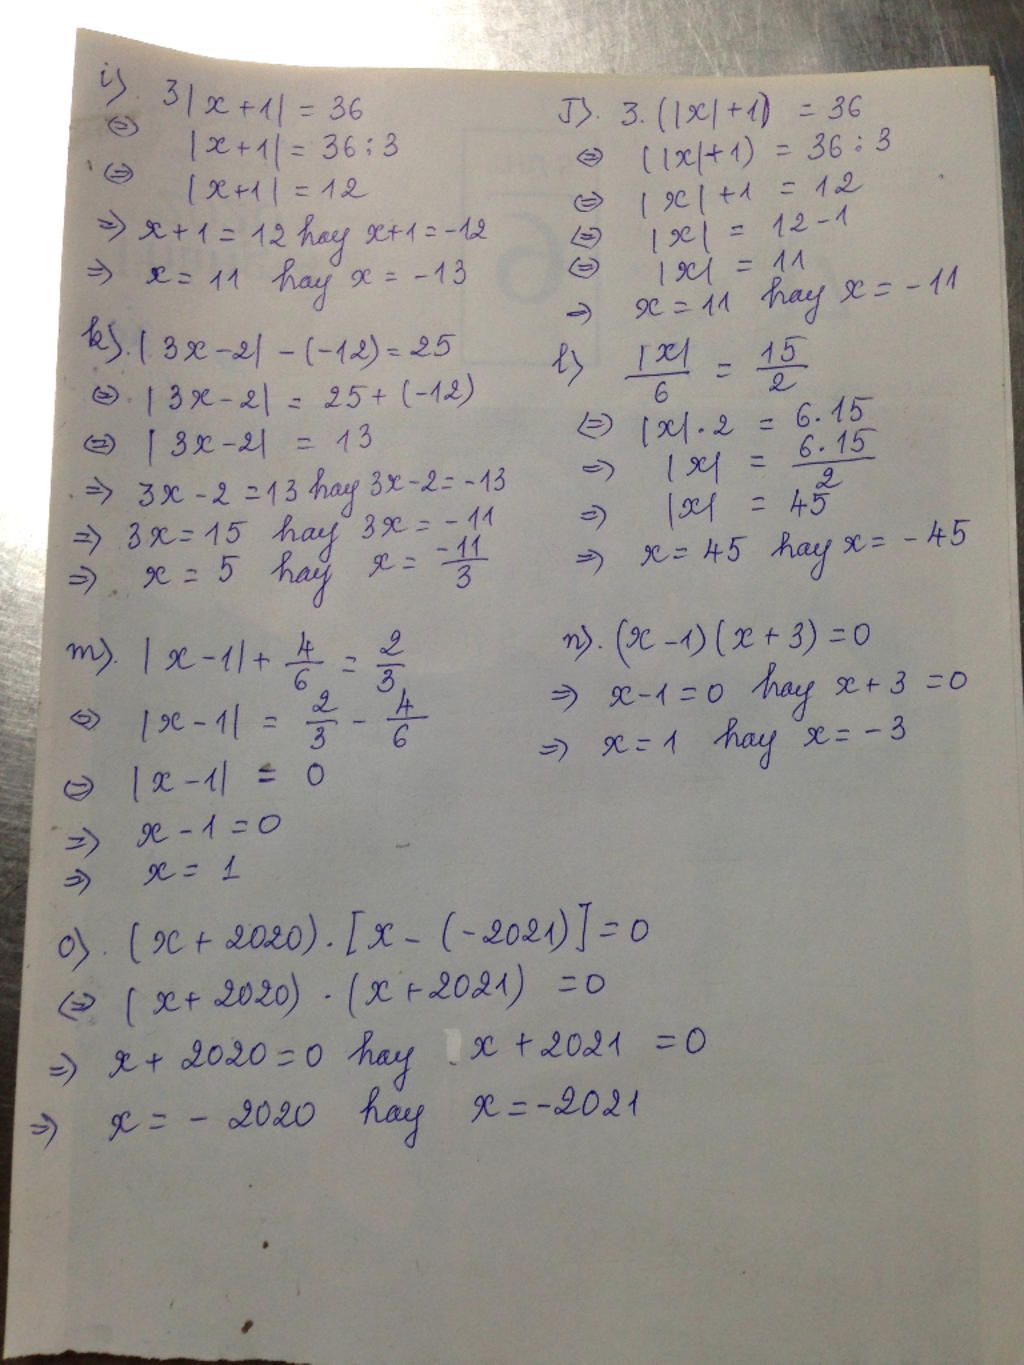 i). 3|x+1| = 36
⇔ |x+1| = 36:3
⇔ |x+1| = 12
⇒ x+1 = 12 hay x+1 = -12
⇒ x = 11 hay x = -13
J). 3.(|x|+1) = 36
⇔ (|x|+1) = 36:3
⇔ |x|+1 = 12
⇔ |x| = 12-1
⇔ |x| = 11
⇒ x = 11 hay x = -11
k). |3x-2| - (-12) = 25
⇔ |3x-2| = 25+(-12)
⇔ |3x-2| = 13
⇒ 3x-2 = 13 hay 3x-2 = -13
⇒ 3x = 15 hay 3x = -11
⇒ x = 5 hay x = -11/3
l) |x|/6 = 15/2
⇔ |x|.2 = 6.15
⇒ |x| = 6.15/2
⇒ |x| = 45
⇒ x = 45 hay x = -45
m). |x-1| + 4/6 = 2/3
⇔ |x-1| = 2/3 - 4/6
⇔ |x-1| = 0
⇒ x-1 = 0
⇒ x = 1
n). (x-1)(x+3) = 0
⇒ x-1 = 0 hay x+3 = 0
⇒ x = 1 hay x = -3
o). (x+2020).[x-(-2021)] = 0
⇔ (x+2020).(x+2021) = 0
⇒ x+2020 = 0 hay x+2021 = 0
⇒ x = -2020 hay x = -2021